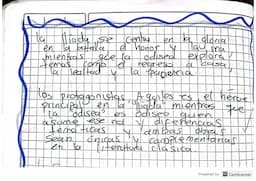 la Iliada se centra en la gloria
en la batalla el honor y la ira
mientras que la odisea explora
temas como el regreso a casa,
la lealtad y la paciencia
los protagonistas Aquiles es el héroe
principal en la "Iliada" mientras que
la "odisea" es odiseo quien
asume ese rol y diferencias
tematicas y ambas obras
sean únicas y complementarias
en la literatura clásica